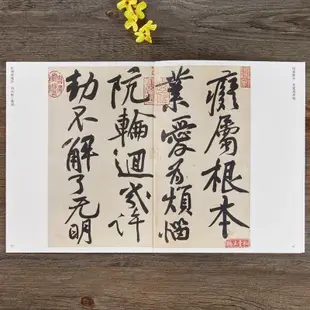 癡屬根本
業愛為煩惱
阬輪迴幾許
劫不解了无明